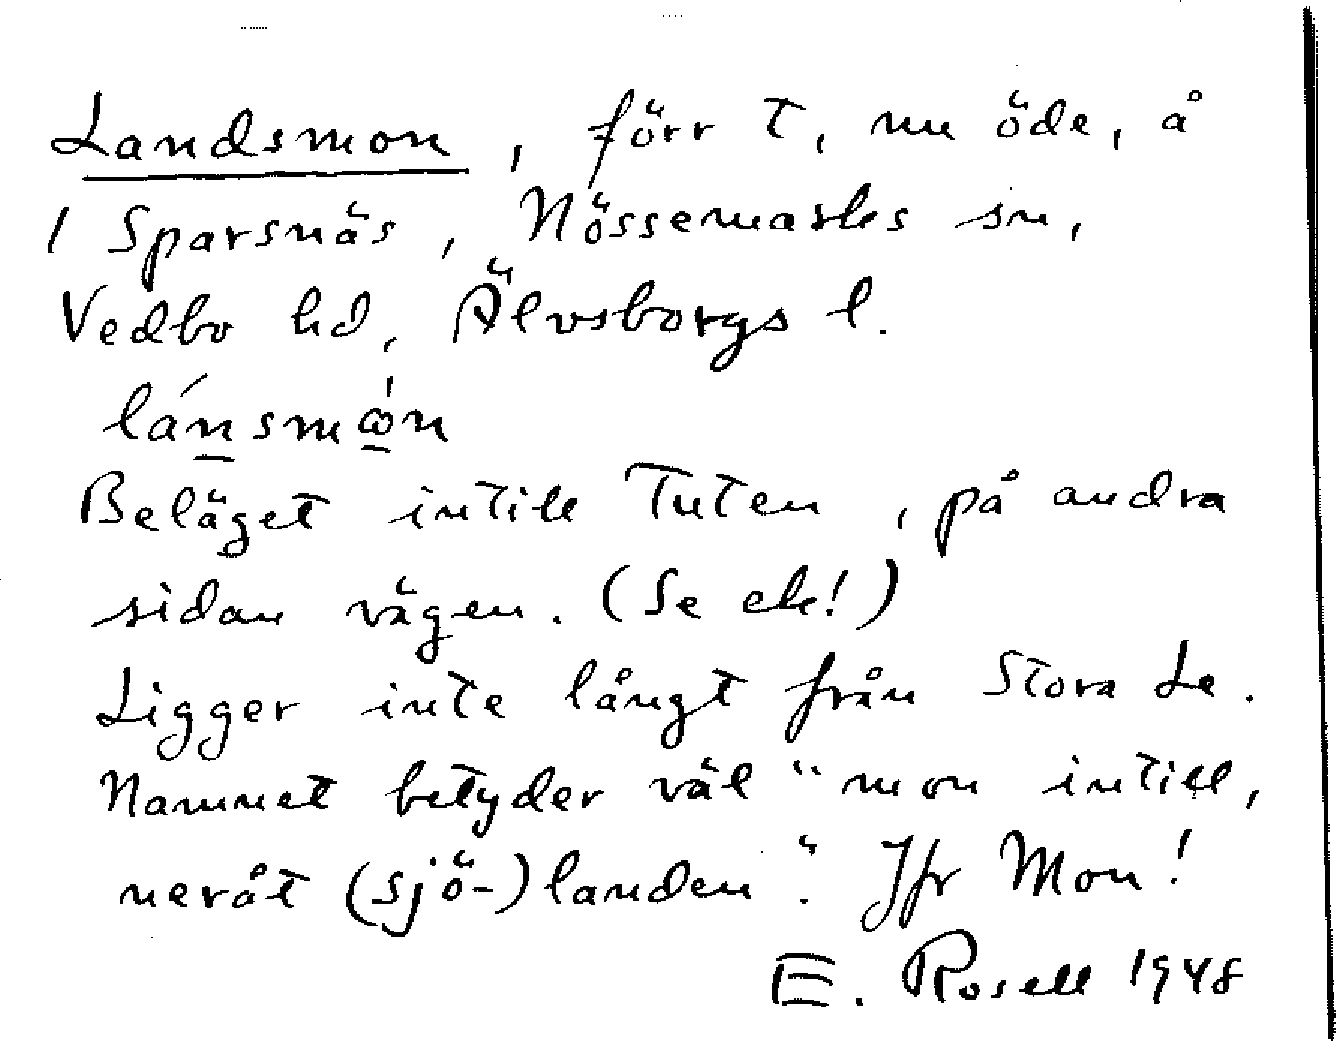 Landsmon, förr t, nu öde, å
1 Sparsnäs, Nössemarks sn,
Vedbo hd, Älvsborgs l.
Beläget intill Tuten, på andra
sidan vägen. (Se ek!)
Ligger inte långt från Stora Le.
Namnet betyder väl "mon intill,
neråt (sjö-)landen". Jfr Mon!
E. Rosell 1948